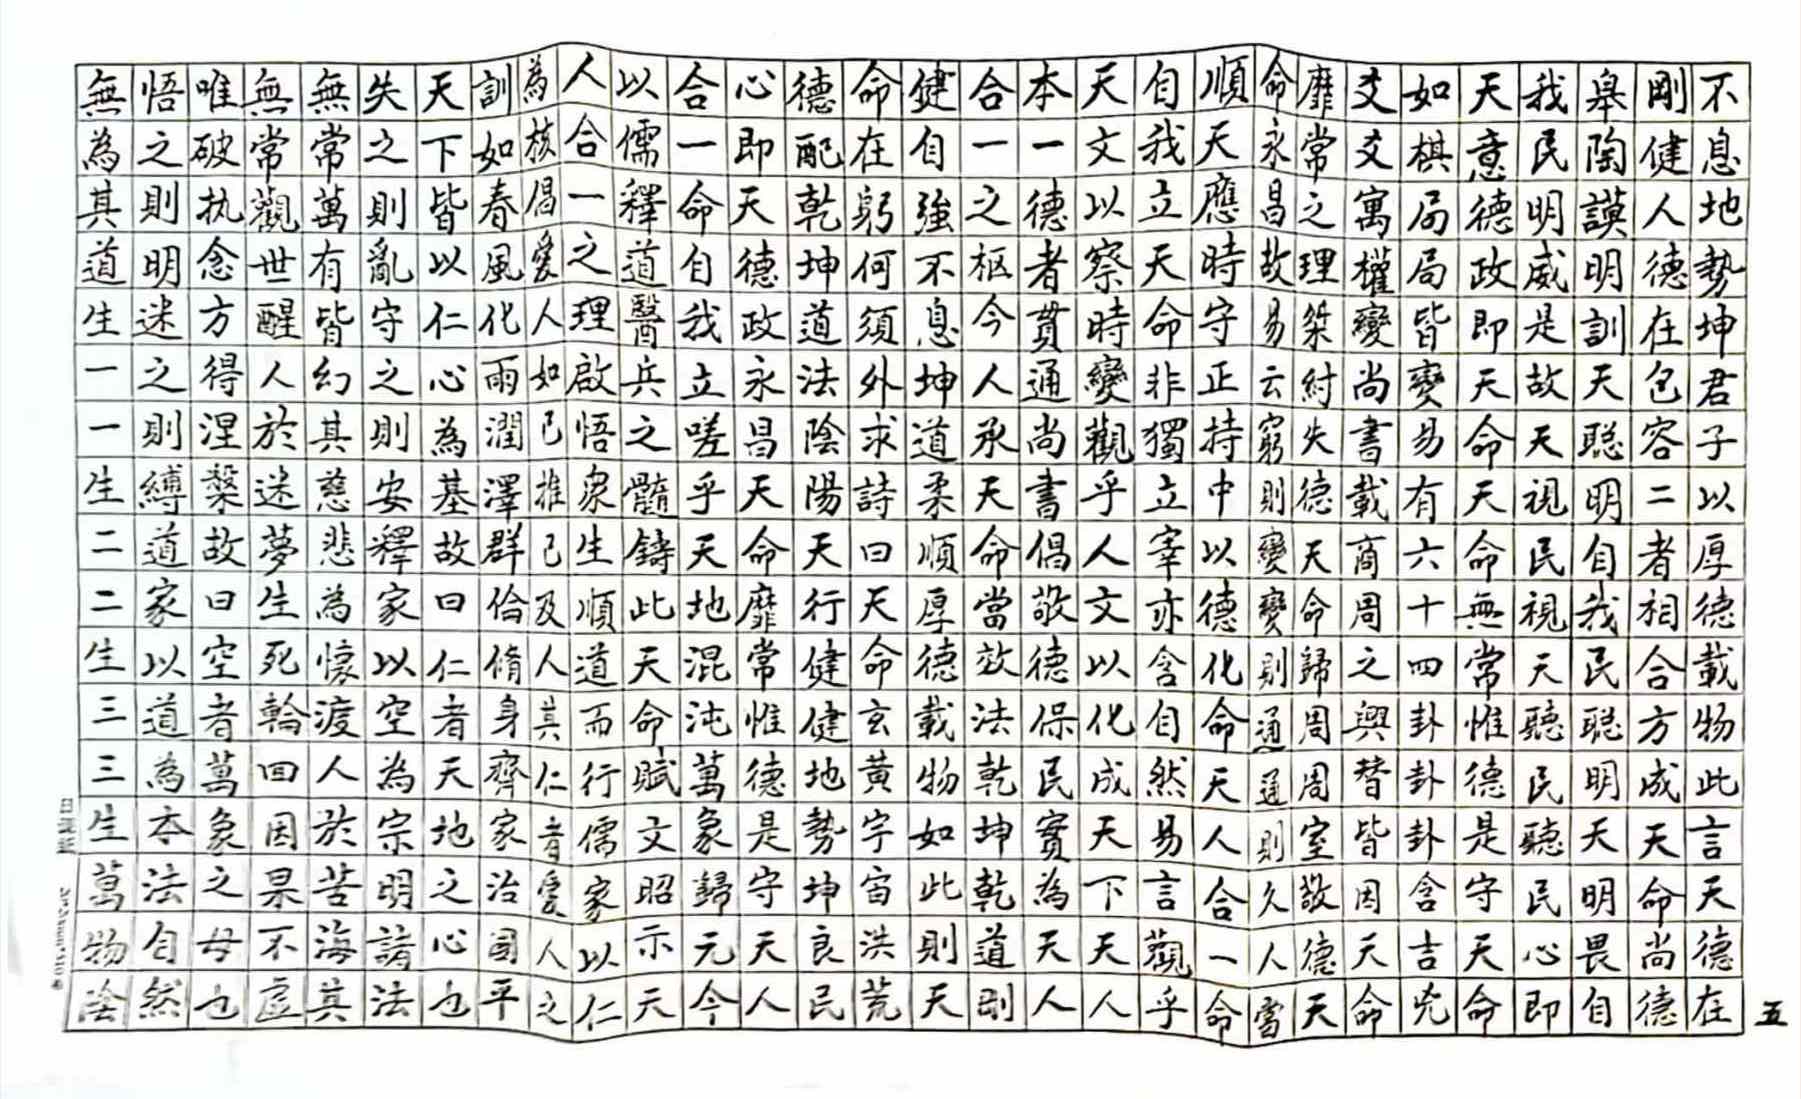 五
不息地勢坤君子以厚德載物此言天德在
剛健人德在包容二者相合方成天命尚德
皋陶謨明訓天聰明自我民聰明天明畏自
我民明威是故天視民視天聽民聽民心即
天意德政即天命天命無常惟德是守天命
如棋局局皆變易有六十四卦卦卦含吉兇
爻爻寓權變尚書載商周之興替皆因天命
靡常之理桀紂失德天命歸周周室敬德天
命永昌故易云窮則變變則通通則久人當
順天應時守正持中以德化命天人合一命
自我立天命非獨立宰亦含自然易言觀乎
天文以察時變觀乎人文以化成天下天人
本一德者貫通尚書倡敬德保民實為天人
合一之枢今人承天命當效法乾坤乾道剛
健自強不息坤道柔順厚德載物如此則天
命在躬何須外求詩曰天命玄黃宇宙洪荒
德配乾坤道法陰陽天行健健地勢坤良民
心即天德政永昌天命靡常惟德是守天人
合一命自我立嗟乎天地混沌萬象歸元今
以儒釋道醫兵之髓鑄此天命賦文昭示天
人合一之理啟悟眾生順道而行儒家以仁
為核倡愛人如己推己及人其仁者愛人之
訓如春風化雨潤澤群倫脩身齊家治國平
天下皆以仁心為基故曰仁者天地之心也
失之則亂守之則安釋家以空為宗明諸法
無常萬有皆幻其慈悲為懷渡人於苦海其
無常觀世醒人於迷夢生死輪回因果不虛
唯破执念方得涅槃故曰空者萬象之母也
悟之則明迷之則縛道家以道為本法自然
無為其道生一一生二二生三三生萬物陰